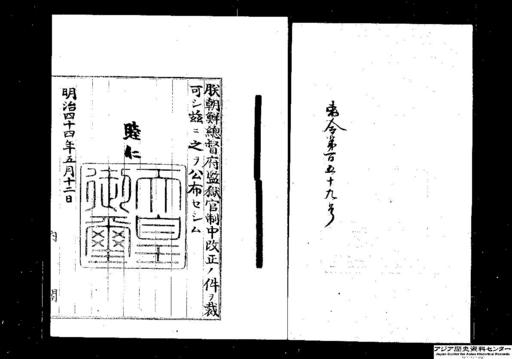 勅令第百五十九号
朕朝鮮總督府監獄官制中改正ノ件ヲ裁
可シ玆ニ之ヲ公布セシム
睦仁
天皇御璽
明治四十四年五月十二日
内閣
アジア歴史資料センター
Japan Center for Asian Historical Records